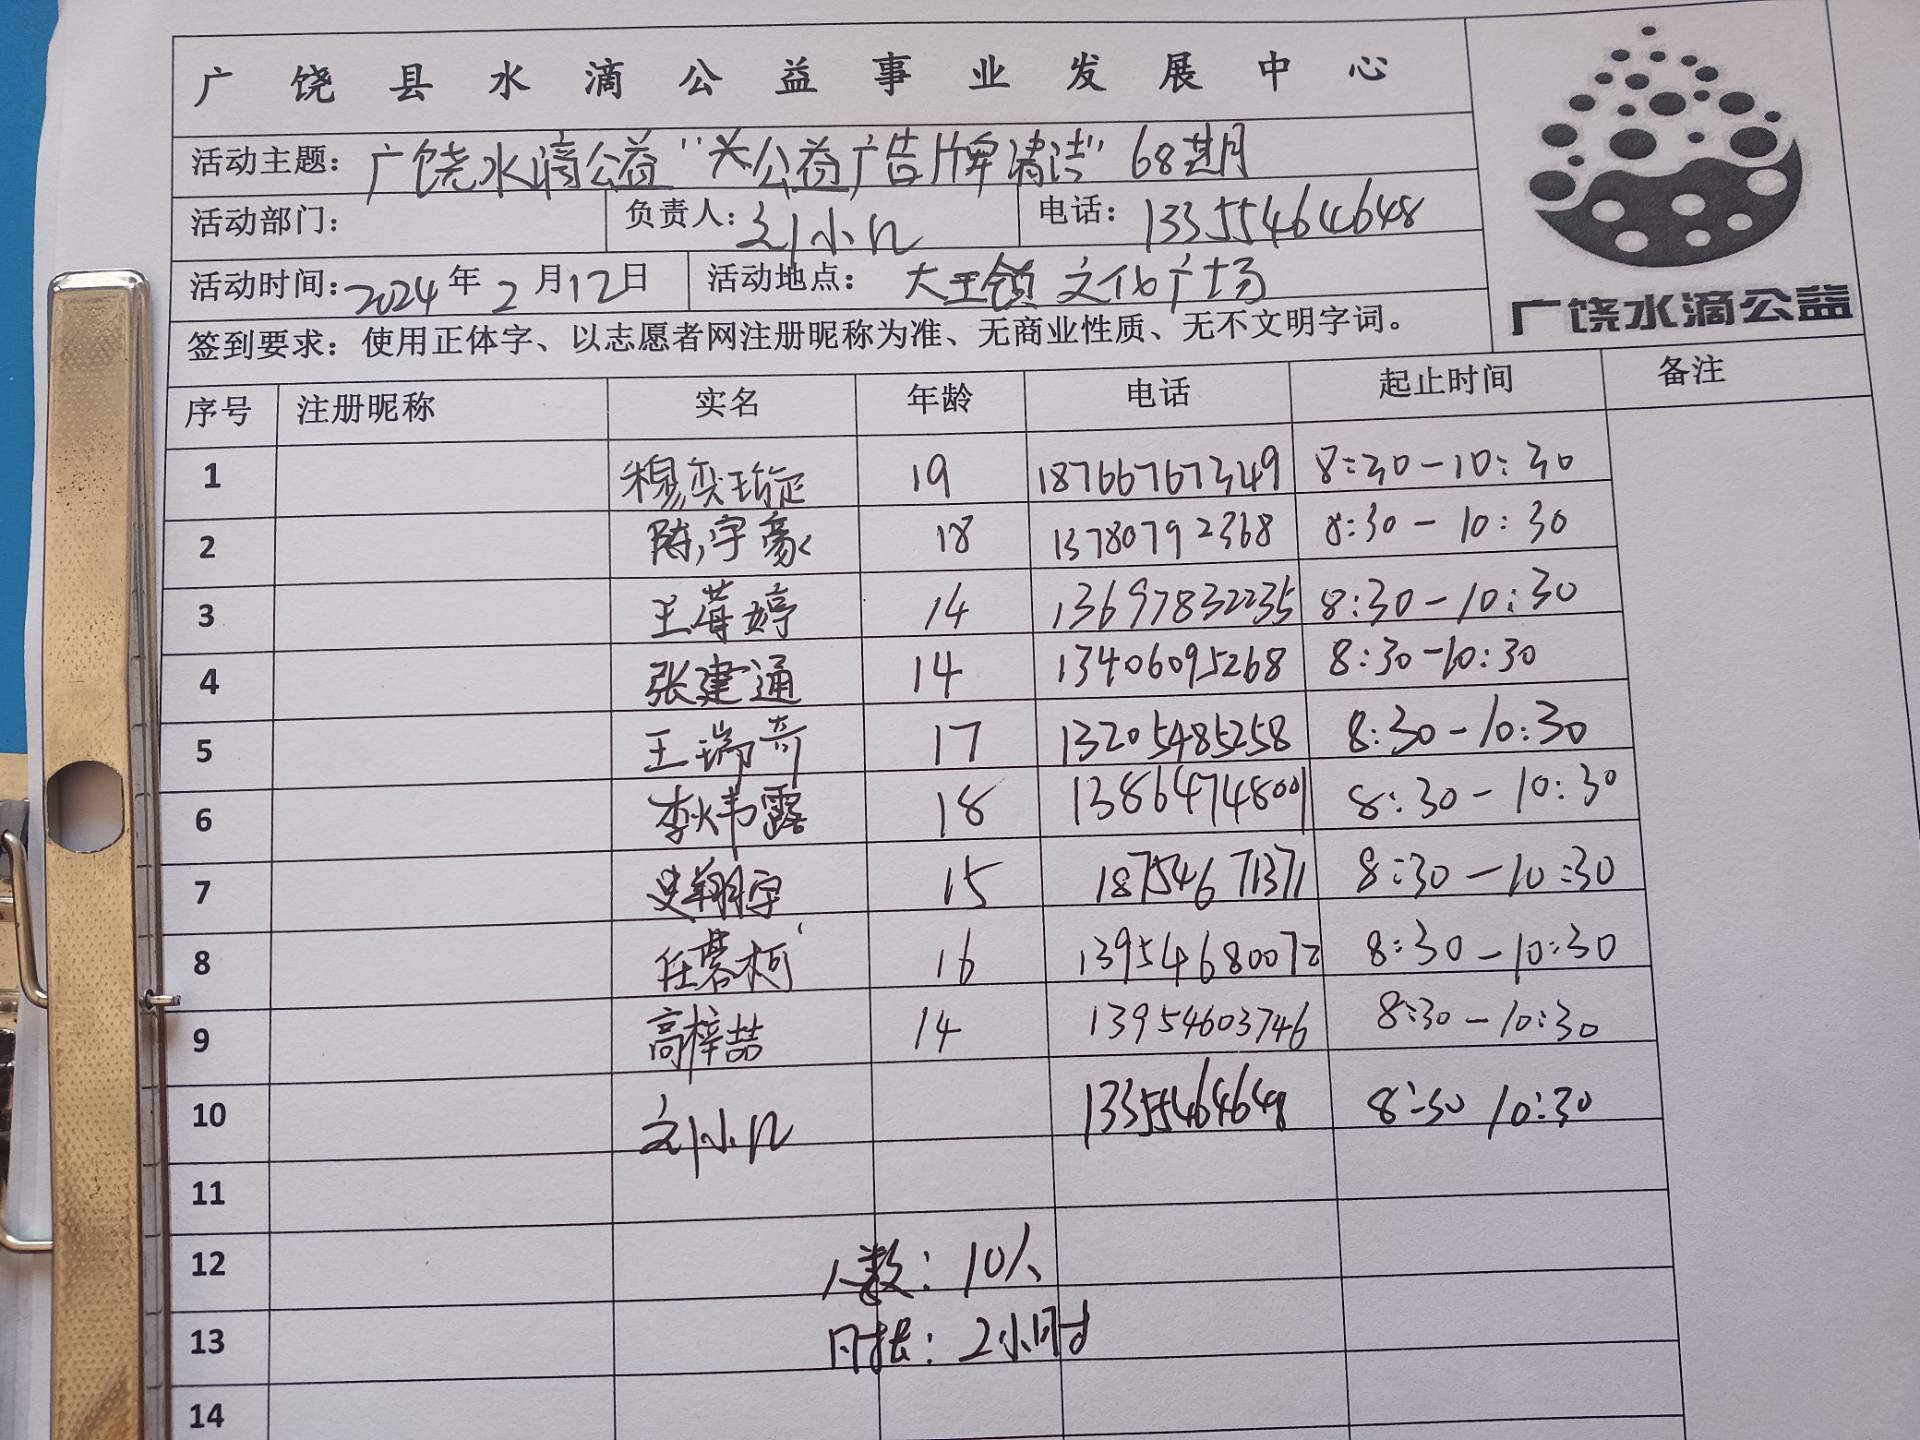 广饶县水滴公益事业发展中心
活动主题：广饶水滴公益"关公益广告牌清洁"68期
活动部门： 负责人：刘小几 电话：13355464648
活动时间：2024年2月12日 活动地点：大王镇 文化广场
广饶水滴公益
签到要求：使用正体字、以志愿者网注册昵称为准、无商业性质、无不文明字词。
序号 注册昵称 实名 年龄 电话 起止时间 备注
1 穆奕 19 18766767349 8:30-10:30
2 陈宇豪 18 13780792368 8:30-10:30
3 王莓婷 14 13697832235 8:30-10:30
4 张建通 14 13406095268 8:30-10:30
5 王瑞奇 17 13205485258 8:30-10:30
6 李炜露 18 13864748001 8:30-10:30
7 史翔宇 15 18754671371 8:30-10:30
8 任慕柯 16 13954680072 8:30-10:30
9 高梓喆 14 13954603746 8:30-10:30
10 刘小几 13355464648 8:30 10:30
11
12 人数：10人
13 时长：2小时
14